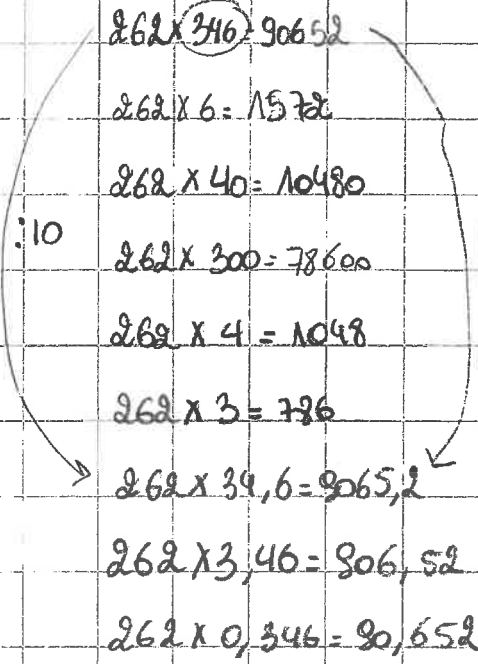 262 x 346 = 90652
262 x 6 = 1572
262 x 40 = 10480
:10
262 x 300 = 78600
262 x 4 = 1048
262 x 3 = 786
262 x 34,6 = 9065,2
262 x 3,46 = 906,52
262 x 0,346 = 90,652